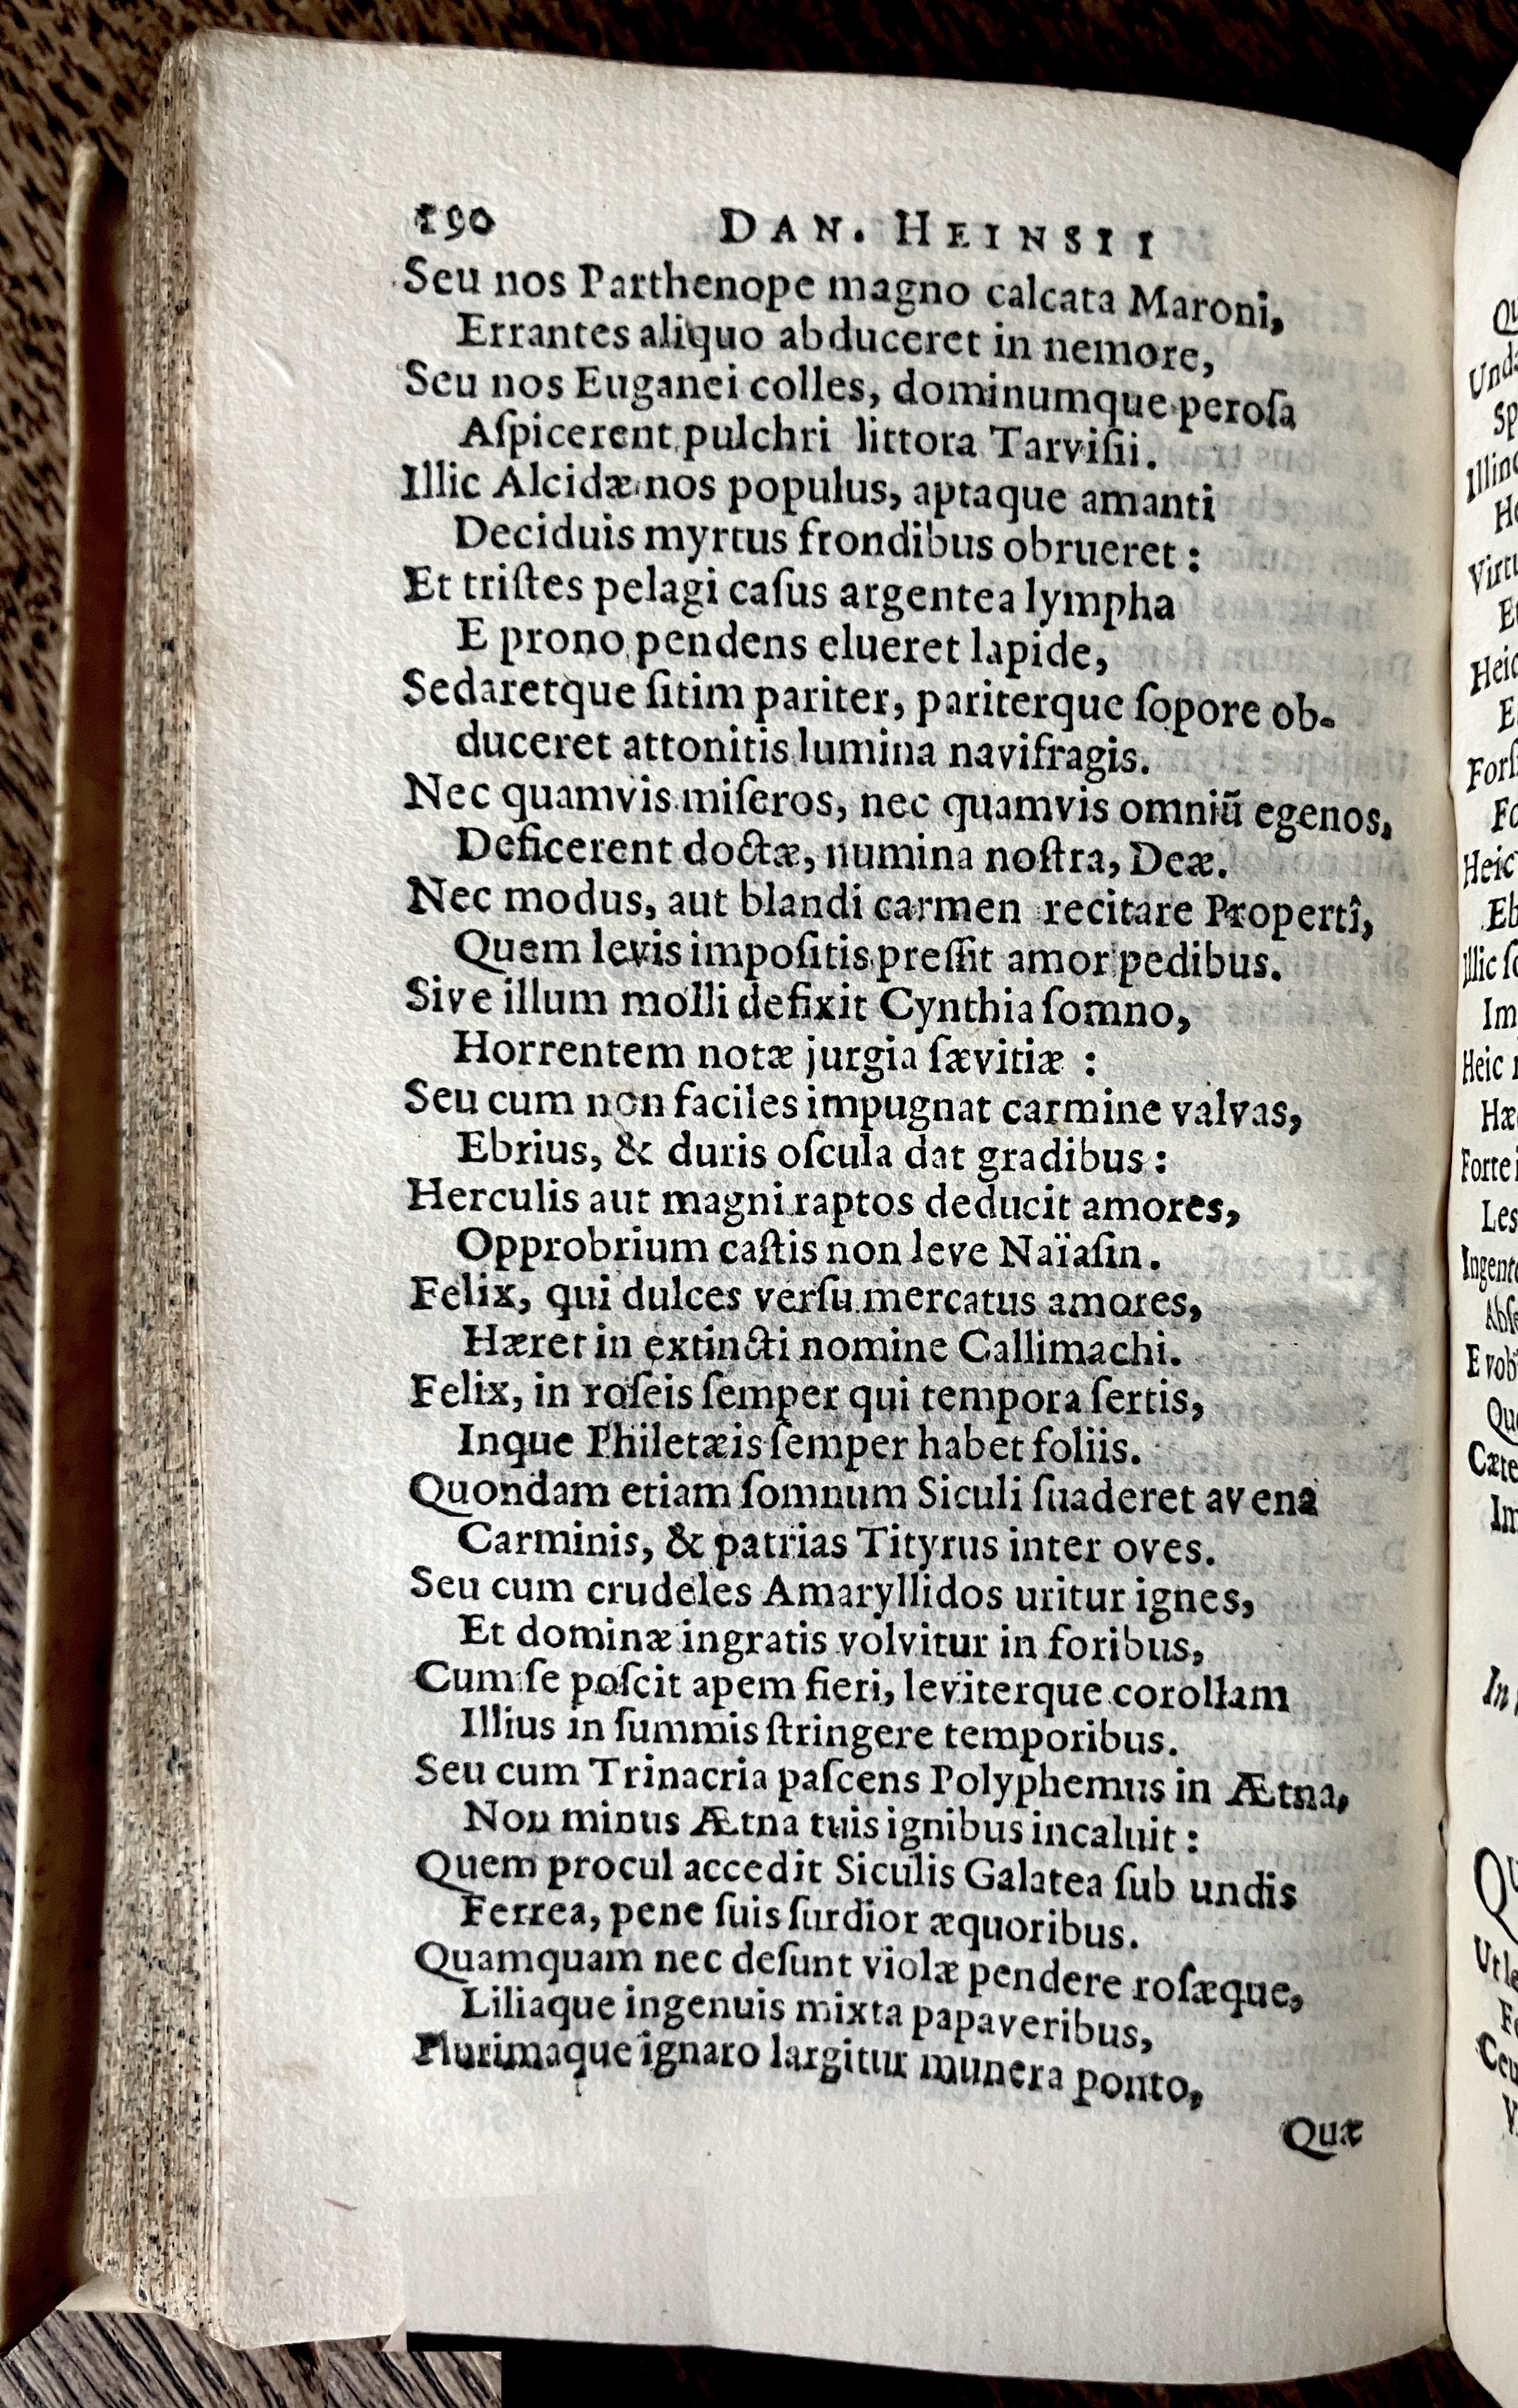 190 DAN. HEINSII
Seu nos Parthenope magno calcata Maroni,
Errantes aliquo abduceret in nemore,
Seu nos Euganei colles, dominumque peroſa
Aſpicerent pulchri littora Tarviſii.
Illic Alcidæ nos populus, aptaque amanti
Deciduis myrtus frondibus obrueret :
Et triſtes pelagi caſus argentea lympha
E prono pendens elueret lapide,
Sedaretque ſitim pariter, pariterque ſopore ob-
duceret attonitis lumina navifragis.
Nec quamvis miſeros, nec quamvis omniū egenos,
Deficerent doctæ, numina noſtra, Deæ.
Nec modus, aut blandi carmen recitare Propertî,
Quem levis impoſitis preſſit amor pedibus.
Sive illum molli defixit Cynthia ſomno,
Horrentem notæ jurgia ſævitiæ :
Seu cum non faciles impugnat carmine valvas,
Ebrius, & duris oſcula dat gradibus :
Herculis aut magni raptos deducit amores,
Opprobrium caſtis non leve Naïaſin.
Felix, qui dulces verſu mercatus amores,
Hæret in extincti nomine Callimachi.
Felix, in roſeis ſemper qui tempora ſertis,
Inque Philetæis ſemper habet foliis.
Quondam etiam ſomnum Siculi ſuaderet avena
Carminis, & patrias Tityrus inter oves.
Seu cum crudeles Amaryllidos uritur ignes,
Et dominæ ingratis volvitur in foribus,
Cum ſe poſcit apem fieri, leviterque corollam
Illius in ſummis ſtringere temporibus.
Seu cum Trinacria paſcens Polyphemus in Ætna,
Non minus Ætna tuis ignibus incaluit :
Quem procul accedit Siculis Galatea ſub undis
Ferrea, pene ſuis ſurdior æquoribus.
Quamquam nec deſunt violæ pendere roſæque,
Liliaque ingenuis mixta papaveribus,
Plurimaque ignaro largitur munera ponto,
Quæ